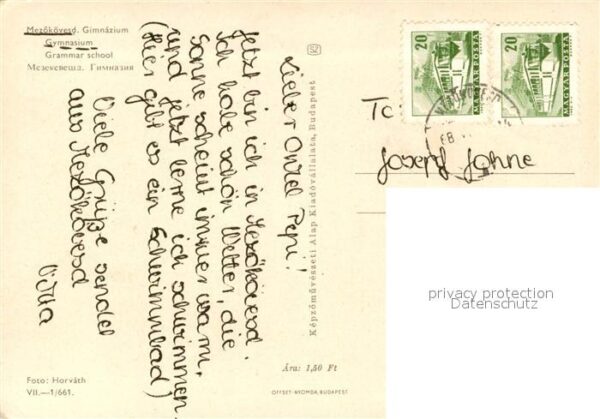 Mezőkövesd. Gimnázium
Gymnasium
Grammar school
Мезекевеша. Гимназия
Lieber Onkel Pepi!
Jetzt bin ich in Mezőkövesd.
Ich habe schön Wetter, die
Sonne scheint immer warm,
und jetzt lerne ich schwimmen.
(Hier gibt es ein Schwimmbad)
Viele Grüße sendet
aus Mezőkövesd
Képzőművészeti Alap Kiadóvállalata, Budapest
Ára: 1,50 Ft
OFFSET-NYOMDA, BUDAPEST
Foto: Horváth
VII.—1/661.
20
MAGYAR POSTA
20
MAGYAR POSTA
68
To:
Josend Johne
privacy protection
Datenschutz